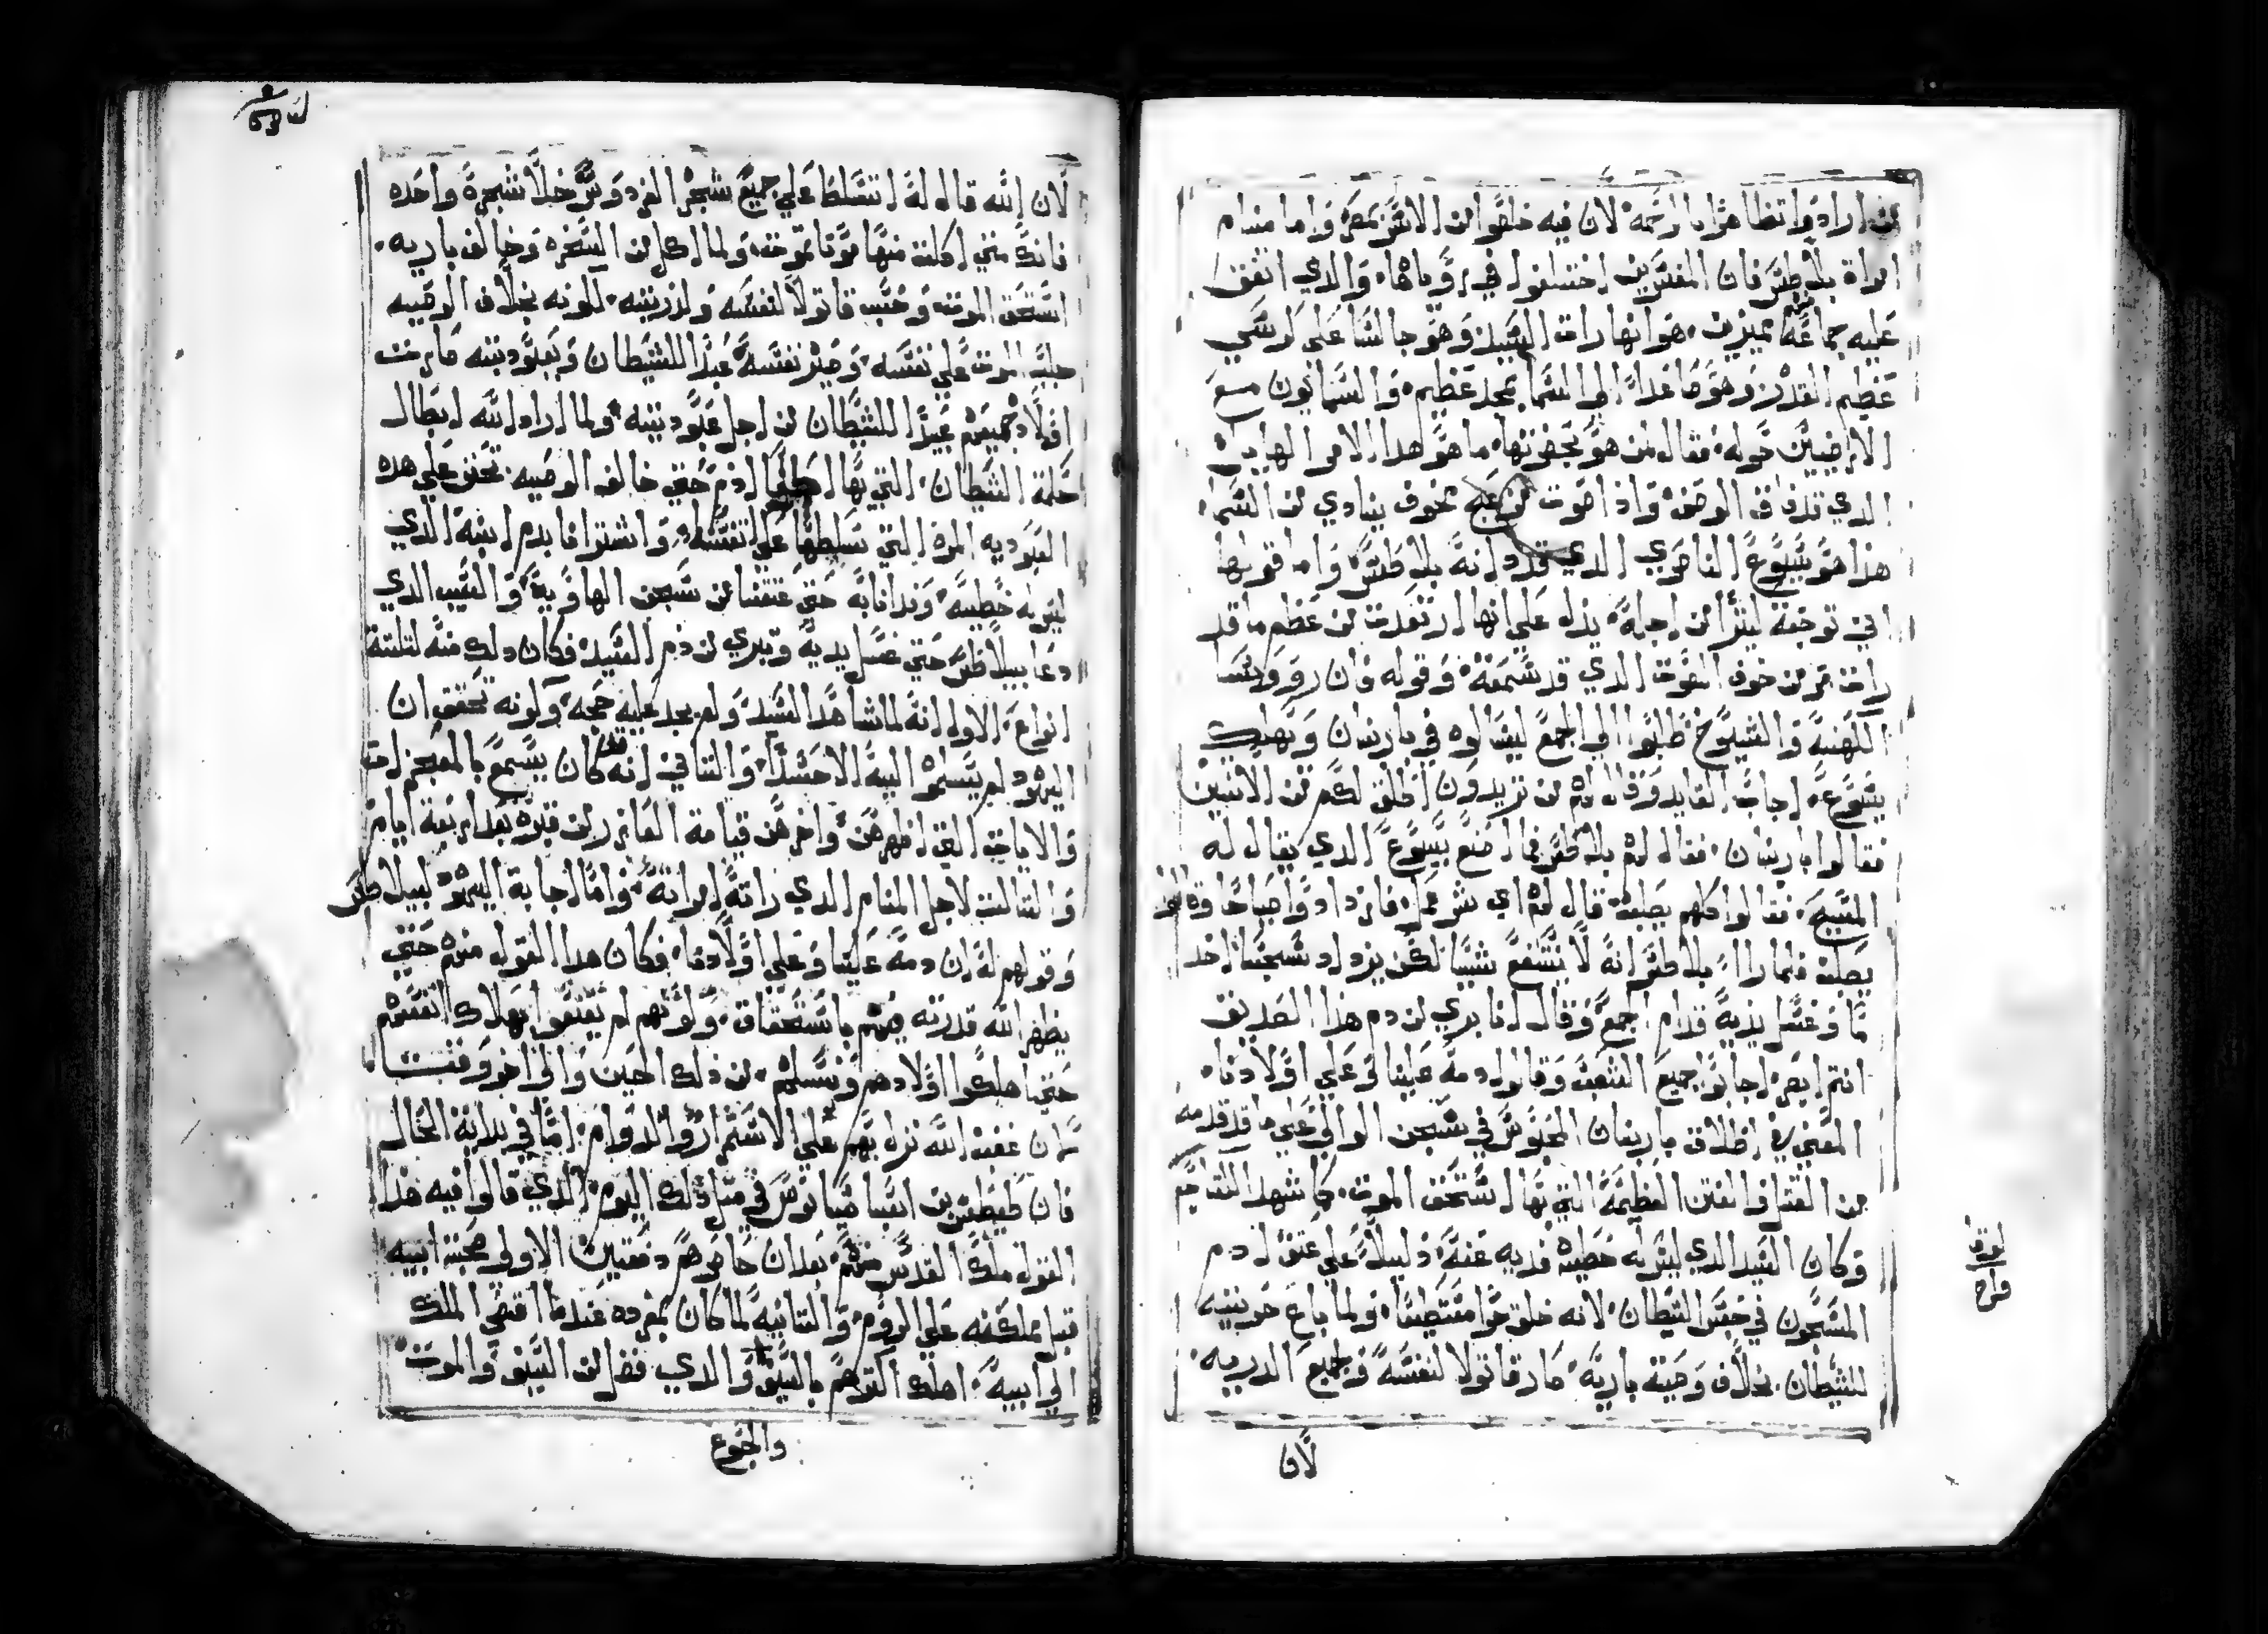 من اراد وا تظاهرا بالرحمه لان فيه خلصوا من الاشر بمصر واما منام
امراة بلاطس فان المفسرين اختلفوا في روياها والدي اتفق
عليه جماعة مميزين هو انها رات السيد وهو جالسا علي كرسي
عظيم القدر وهو صاعدا الي السما بمجد عظيم والسمايون مع
الارضيين حوله فقال من هو بحضرتها ما هو هدا الامر الهايل
الدي قد فاق الوصف واذا صوت مخوف ينادي من السما
هذا هو يسوع الناصري الدي قدانه بلاطس واما قولها
اني توجعة ليثرا من اجله يدل علي انها ارتعدت من عظم ما قد
رات ومن خوف الصوت الدي قد سمعته وقوله فان روسا
الكهنه والشيوخ طلبوا الي الجمع ليسالوه في باربنان ويهلك
يسوع اجاب القايد وقال لهم من تريدون اطلق لكم من الاتنين
فقالوا باربنان فقال لهم بلاطس فما اصنع بيسوع الدي يقال له
المسيح فقالوا كلهم يصلب قال لهم اي شر عمل فازدادوا صياحا وقالوا
يصلب فلما راا بلاطس انه لا ينتفع شييا لكن يزداد شجسا اخد
ما وغسل يديه قدام الجمع وقال انا بري من دم هذا الصديق
انتم ابصر اجابوا جميع الشعب وقالوا دمه علينا وعلي اولادنا
المعني في اطلاق باربنان المحبوس في سجن الوالي علي ما قد قدمه
من القتل والفتن العظيمة التي بها استحق الموت كما شهد التلاميد
وكان السيد الدي ليس له خطيه فديه عنه دليلا علي عتق ادم
المسجون في حبس الشيطان لانه خلق حرا متسلطا ولما باع حريته
للشيطان بخلاف وصية باريه صار قاتولا لنفسه ولجميع الدريه
لان
لان الله قال له اتسلط علي جميع شجر الفردوس خلا شجرة واحده
فانك متي اكلت منها موتا تموت ولما اكل من الشجره وخالف باريه
استحق الموت وحسب قاتولا لنفسه ولذريته لكونه بخلاف الوصيه
جلب الموت علي نفسه وصير نفسه عبدا للشيطان وبعبوديته صارت
اولاد جميعهم عبيدا للشيطان من اجل عبوديته ولما اراد الله ابطال
حيلة الشيطان التي بها اطغا ادم حتي خالف الوصيه تحنن علي هده
العبوديه المره التي سلطها علي نفسه واشترانا بدم ابنه الدي
ليس له خطيه وفدانا به حتي عتقنا من سجن الهاويه والسبب الدي
دعا بيلاطس حتي غسل يديه وتبري من دم السيد فكان دلك منه لتلتة
انواع الاول انه لما شاهد السيد ولم يجد عليه حجه ولكونه تحقق ان
اليهود لم يسلموا اليه الا حسدا والتاني انه كان يسمع بالمعجزات
والايات التي اظهرهن واخرهن قيامة العازر من قبره بعد اربعة ايام
والتالت لاجل المنام الدي راته امراته واما اجابة اليهود لبيلاطس
وقولهم له ان دمه علينا وعلي اولادنا فكان هدا القول منهم حتي
يظهر الله قدرته فيهم باستحقاق ولكونهم لم يقنعوا بهلاك انفسهم
حتي اهلكوا اولادهم ونسلهم من ذلك الحين والي اخر وقت
لان غضب الله نزل بهم علي الاستمرار والدوام اما في بداية الحال
فان طيطس بن اسباسيانوس في متل ذلك اليوم الدي قالوا فيه هذا
القول ملك القدس منهم بعد ان حاصرهم دفعتين الاولي صحبة ابيه
قبل مملكته علي الروم والتانيه لما كان بمفرده عندما افتضي الملك
الي ابيه اهلك اكترهم بالسيف والدي فضل من السيف والموت
والجوع